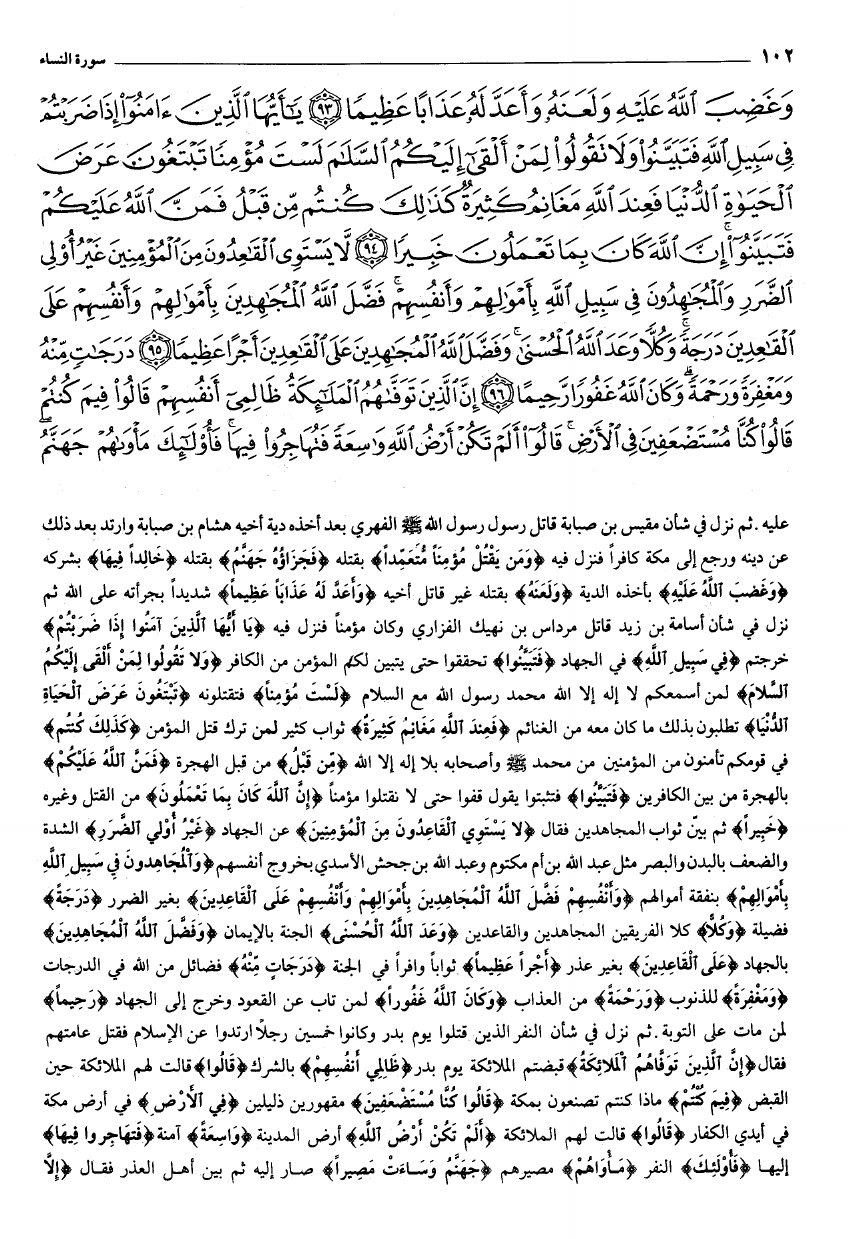 ١٠٢ سورة النساء
وَغَضِبَ ٱللَّهُ عَلَيْهِ وَلَعَنَهُۥ وَأَعَدَّ لَهُۥ عَذَابًا عَظِيمًا ٩٣ يَـٰٓأَيُّهَا ٱلَّذِينَ ءَامَنُوٓا۟ إِذَا ضَرَبْتُمْ
فِى سَبِيلِ ٱللَّهِ فَتَبَيَّنُوا۟ وَلَا تَقُولُوا۟ لِمَنْ أَلْقَىٰٓ إِلَيْكُمُ ٱلسَّلَـٰمَ لَسْتَ مُؤْمِنًا تَبْتَغُونَ عَرَضَ
ٱلْحَيَوٰةِ ٱلدُّنْيَا فَعِندَ ٱللَّهِ مَغَانِمُ كَثِيرَةٌ ۚ كَذَٰلِكَ كُنتُم مِّن قَبْلُ فَمَنَّ ٱللَّهُ عَلَيْكُمْ
فَتَبَيَّنُوٓا۟ ۚ إِنَّ ٱللَّهَ كَانَ بِمَا تَعْمَلُونَ خَبِيرًا ٩٤ لَّا يَسْتَوِى ٱلْقَـٰعِدُونَ مِنَ ٱلْمُؤْمِنِينَ غَيْرُ أُو۟لِى
ٱلضَّرَرِ وَٱلْمُجَـٰهِدُونَ فِى سَبِيلِ ٱللَّهِ بِأَمْوَٰلِهِمْ وَأَنفُسِهِمْ ۚ فَضَّلَ ٱللَّهُ ٱلْمُجَـٰهِدِينَ بِأَمْوَٰلِهِمْ وَأَنفُسِهِمْ عَلَى
ٱلْقَـٰعِدِينَ دَرَجَةً ۚ وَكُلًّا وَعَدَ ٱللَّهُ ٱلْحُسْنَىٰ ۚ وَفَضَّلَ ٱللَّهُ ٱلْمُجَـٰهِدِينَ عَلَى ٱلْقَـٰعِدِينَ أَجْرًا عَظِيمًا ٩٥ دَرَجَـٰتٍ مِّنْهُ
وَمَغْفِرَةً وَرَحْمَةً ۚ وَكَانَ ٱللَّهُ غَفُورًا رَّحِيمًا ٩٦ إِنَّ ٱلَّذِينَ تَوَفَّىٰهُمُ ٱلْمَلَـٰٓئِكَةُ ظَالِمِىٓ أَنفُسِهِمْ قَالُوا۟ فِيمَ كُنتُمْ ۖ
قَالُوا۟ كُنَّا مُسْتَضْعَفِينَ فِى ٱلْأَرْضِ ۚ قَالُوٓا۟ أَلَمْ تَكُنْ أَرْضُ ٱللَّهِ وَٰسِعَةً فَتُهَاجِرُوا۟ فِيهَا ۚ فَأُو۟لَـٰٓئِكَ مَأْوَىٰهُمْ جَهَنَّمُ ۖ
عليه. ثم نزل في شأن مقيس بن صبابة قاتل رسول رسول الله ﷺ الفهري بعد أخذه دية أخيه هشام بن صبابة وارتد بعد ذلك
عن دينه ورجع إلى مكة كافراً فنزل فيه ﴿وَمَن يَقْتُلْ مُؤْمِناً مُّتَعَمِّداً﴾ بقتله ﴿فَجَزَاؤُهُ جَهَنَّمُ﴾ بقتله ﴿خَالِداً فِيهَا﴾ بشركه
﴿وَغَضِبَ ٱللَّهُ عَلَيْهِ﴾ بأخذه الدية ﴿وَلَعَنَهُ﴾ بقتله غير قاتل أخيه ﴿وَأَعَدَّ لَهُ عَذَاباً عَظِيماً﴾ شديداً بجرأته على الله ثم
نزل في شأن أسامة بن زيد قاتل مرداس بن نهيك الفزاري وكان مؤمناً فنزل فيه ﴿يَا أَيُّهَا ٱلَّذِينَ آمَنُوا إِذَا ضَرَبْتُمْ﴾
خرجتم ﴿فِي سَبِيلِ ٱللَّهِ﴾ في الجهاد ﴿فَتَبَيَّنُوا﴾ تحققوا حتى يتبين لكم المؤمن من الكافر ﴿وَلَا تَقُولُوا لِمَنْ أَلْقَى إِلَيْكُمُ
ٱلسَّلَامَ﴾ لمن أسمعكم لا إله إلا الله محمد رسول الله مع السلام ﴿لَسْتَ مُؤْمِناً﴾ فتقتلونه ﴿تَبْتَغُونَ عَرَضَ ٱلْحَيَاةِ
ٱلدُّنْيَا﴾ تطلبون بذلك ما كان معه من الغنائم ﴿فَعِندَ ٱللَّهِ مَغَانِمُ كَثِيرَةٌ﴾ ثواب كثير لمن ترك قتل المؤمن ﴿كَذَلِكَ كُنتُم﴾
في قومكم تأمنون من المؤمنين من محمد ﷺ وأصحابه بلا إله إلا الله ﴿مِّن قَبْلُ﴾ من قبل الهجرة ﴿فَمَنَّ ٱللَّهُ عَلَيْكُمْ﴾
بالهجرة من بين الكافرين ﴿فَتَبَيَّنُوا﴾ فتثبتوا يقول قفوا حتى لا تقتلوا مؤمناً ﴿إِنَّ ٱللَّهَ كَانَ بِمَا تَعْمَلُونَ﴾ من القتل وغيره
﴿خَبِيراً﴾ ثم بيّن ثواب المجاهدين فقال ﴿لَا يَسْتَوِي ٱلْقَاعِدُونَ مِنَ ٱلْمُؤْمِنِينَ﴾ عن الجهاد ﴿غَيْرُ أُوْلِي ٱلضَّرَرِ﴾ الشدة
والضعف بالبدن والبصر مثل عبد الله بن أم مكتوم وعبد الله بن جحش الأسدي بخروج أنفسهم ﴿وَٱلْمُجَاهِدُونَ فِي سَبِيلِ ٱللَّهِ
بِأَمْوَالِهِمْ﴾ بنفقة أموالهم ﴿وَأَنْفُسِهِمْ فَضَّلَ ٱللَّهُ ٱلْمُجَاهِدِينَ بِأَمْوَالِهِمْ وَأَنْفُسِهِمْ عَلَى ٱلْقَاعِدِينَ﴾ بغير الضرر ﴿دَرَجَةً﴾
فضيلة ﴿وَكُلًّا﴾ كلا الفريقين المجاهدين والقاعدين ﴿وَعَدَ ٱللَّهُ ٱلْحُسْنَى﴾ الجنة بالإيمان ﴿وَفَضَّلَ ٱللَّهُ ٱلْمُجَاهِدِينَ﴾
بالجهاد ﴿عَلَى ٱلْقَاعِدِينَ﴾ بغير عذر ﴿أَجْراً عَظِيماً﴾ ثواباً وافراً في الجنة ﴿دَرَجَاتٍ مِّنْهُ﴾ فضائل من الله في الدرجات
﴿وَمَغْفِرَةً﴾ للذنوب ﴿وَرَحْمَةً﴾ من العذاب ﴿وَكَانَ ٱللَّهُ غَفُوراً﴾ لمن تاب عن القعود وخرج إلى الجهاد ﴿رَحِيماً﴾
لمن مات على التوبة. ثم نزل في شأن النفر الذين قتلوا يوم بدر وكانوا خمسين رجلاً ارتدوا عن الإسلام فقتل عامتهم
فقال ﴿إِنَّ ٱلَّذِينَ تَوَفَّاهُمُ ٱلْمَلَائِكَةُ﴾ قبضتم الملائكة يوم بدر ﴿ظَالِمِي أَنفُسِهِمْ﴾ بالشرك ﴿قَالُوا﴾ قالت لهم الملائكة حين
القبض ﴿فِيمَ كُنتُمْ﴾ ماذا كنتم تصنعون بمكة ﴿قَالُوا كُنَّا مُسْتَضْعَفِينَ﴾ مقهورين ذليلين ﴿فِي ٱلْأَرْضِ﴾ في أرض مكة
في أيدي الكفار ﴿قَالُوا﴾ قالت لهم الملائكة ﴿أَلَمْ تَكُنْ أَرْضُ ٱللَّهِ﴾ أرض المدينة ﴿وَاسِعَةً﴾ آمنة ﴿فَتُهَاجِروا فِيهَا﴾
إليها ﴿فَأُوْلَئِكَ﴾ النفر ﴿مَأْوَاهُمْ﴾ مصيرهم ﴿جَهَنَّمُ وَسَاءَتْ مَصِيراً﴾ صار إليه ثم بين أهل العذر فقال ﴿إِلَّا